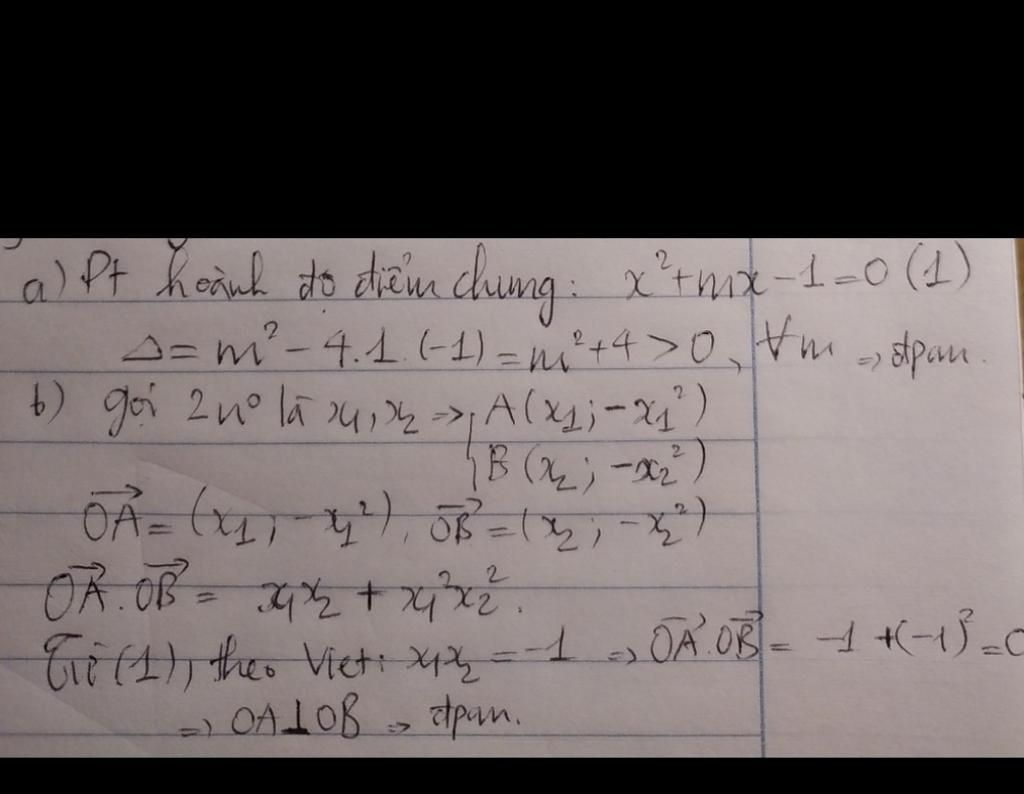 a) Pt hoành độ điểm chung: x²+mx-1=0 (1)
Δ= m²-4.1.(-1)=m²+4>0, ∀m => đpcm.
b) gọi 2 n⁰ là x₁, x₂ => { A(x₁; -x₁²)
B(x₂; -x₂²)
OA→=(x₁; -x₁²), OB→=(x₂; -x₂²)
OA→.OB→= x₁x₂ + x₁²x₂².
Từ (1), theo Viet: x₁x₂=-1 => OA→.OB→= -1+(-1)²=0
=> OA⊥OB => đpcm.